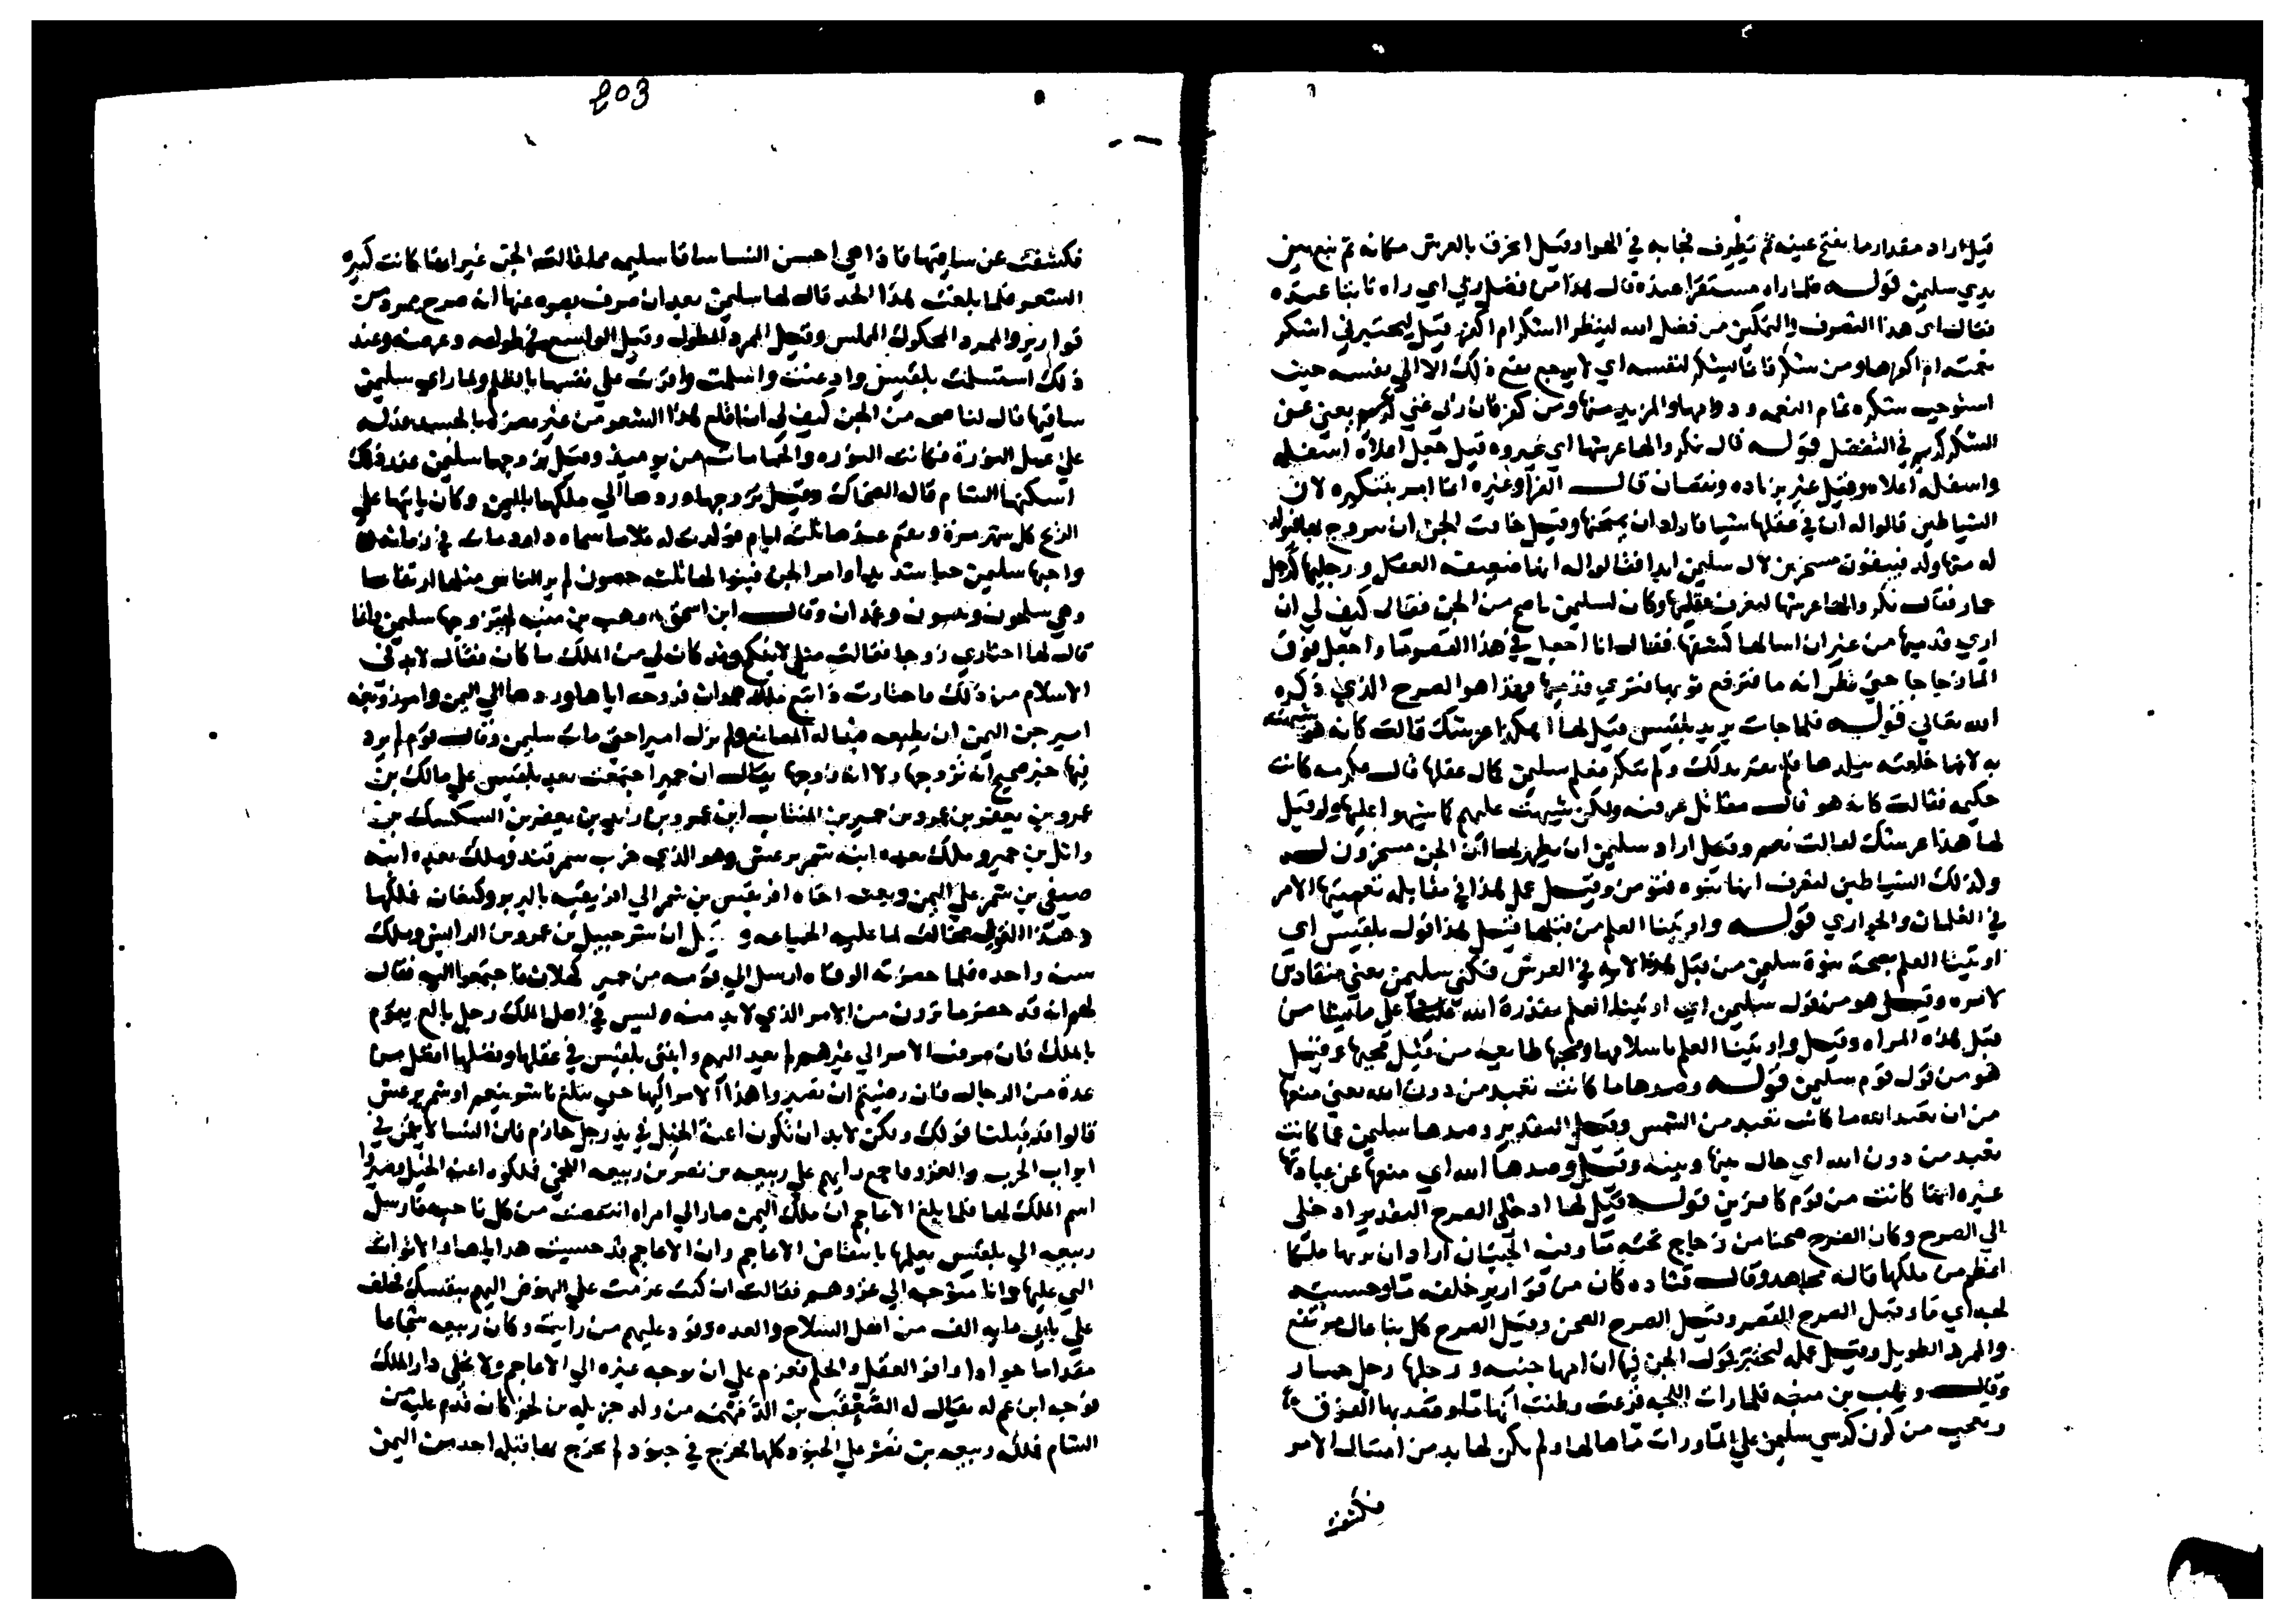 قيل اراد مقدار ما يفتح عينه ثم يطوف فجا به في الهوا وقيل انحرف بالعرش مكانه ثم نبع بين
يدي سليمن قولـــه فلما راه مستقرا عنده قال هذا من فضل ربي اي راه ثابتا عنده
فقال اي هذا التصرف والتمكين من فضل الله لينظر ااشكر ام اكفر قيل ليختبرني اشكر
نعمته ام اكفرها ومن شكر فانما يشكر لنفسه اي لا يرجع نفع ذلك الا الي نفسه حيث
استوجب بشكره تمام النعمه ودوامها والمزيد منها ومن كفر فان ربي غني كريم يعني عن
الشكر كريم في التفضل قولـــه قال نكروا لها عرشها اي غيروه قيل جعل اعلاه اسفله
واسفله اعلاه وقيل غير بزياده ونقصان قالـــ الفرا وغيره انما امر بتنكيره لان
الشياطين قالوا له ان في عقلها شيا فاراد ان يمتحنها وقيل خافت الجن ان يتزوج بها فيولد
له منها ولد فيبقون مسخرين لال سليمن ابدا فقالوا له انها ضعيفة العقل ورجلها كرجل
حمار فقال نكروا لها عرشها ليعرف عقلها وكان لسليمن ناصح من الجن فقال كيف لي ان
اري قدميها من غير ان اسالها كشفها فقال انا اجعل في هذا القصر ما واجعل فوق
الما زجاجا حتي تظن انه ما فترفع ثوبها فتري قدميها فهذا هو الصرح الذي ذكره
الله تعالي قولـــه فلما جات يريد بلقيس قيل لها اهكذا عرشك قالت كانه هو شبهته
به لانها خلفته ببلدها فلم تقر بذلك ولم تنكر فعلم سليمن كمال عقلها قال عكرمه كانت
حكيمه فقالت كانه هو قالـــ مقاتل عرفته ولكن شبهت عليهم كما شبهوا عليها ولو قيل
لها هذا عرشك لقالت نعم وقيل اراد سليمن ان يظهر لها ان الجن مسخرون لـــه
وكذلك الشياطين لتعرف انها نبوه فتومن وقيل عمل هذا في مقابله تعميتها الامر
في الغلمان والجواري قولـــه واوتينا العلم من قبلها فقيل هذا قول بلقيس اي
اوتينا العلم بصحة نبوة سليمن من قبل هذه الايه في العرش وكنا مسلمين يعني منقادين
لامره وقيل هو من قول سليمن اي اوتينا العلم بقدرة الله علي ما يشا من
قبل هذه المراه وقيل واوتينا العلم باسلامها ومجيها طايعه من قبل مجيها وقيل
هو من قول قوم سليمن قولـــه وصدها ما كانت تعبد من دون الله يعني منعها
من ان تعبد الله ما كانت تعبد من الشمس وقيل التقدير وصدها سليمن عما كانت
تعبد من دون الله اي حال بينها وبينه وقيل وصدها الله اي منعها عن عبادة
غيره انها كانت من قوم كافرين قولـــه قيل لها ادخلي الصرح التقدير ادخلي
الي الصرح وكان الصرح صحنا من زجاج تحته ما وفيه الحيتان اراد ان يريها ملكا
اعظم من ملكها قاله مجاهد وقالـــ قتاده كان من قوارير خلفه ما وحسبته
لجه اي ما وقيل الصرح القصر وقيل الصرح الصحن وقيل الصرح كل بنا عال مرتفع
والممرد الطويل وقيل عمله ليختبر قول الجن فيها ان امها جنيه ورجلها رجل حمار
وقالـــ وهب بن منبه فلما رات اللجه فزعت وظنت انها ما وقصد بها الغرق
وتعجب من كون كرسي سليمن علي الما ورات ما هالها ولم يكن لها بد من امتثال الامر
فكشفت
203
فكشفت عن ساقيها فاذا هي احسن النسا ساقا سليمه مما قالت الجن غير انها كانت كثيره
الشعر فلما بلغت هذا الحد قال لها سليمن بعد ان صرف بصره عنها انه صرح ممرد من
قوارير والممرد المحكوك المملس وقيل الممرد المطول وقيل الواسع في طوله وعرضه وعند
ذلك استسلمت بلقيس واذعنت واسلمت واقرت علي نفسها بالظلم ولما راي سليمن
ساقيها قال لناصحه من الجن كيف لي ان اقلع هذا الشعر من غير مضرة بالجسد فدله
علي عمل النورة فكانت النوره والحمامات من يوميذ وقيل تزوجها سليمن عند ذلك
اسكنها الشام قاله الضحاك وقيل تزوجها وردها الي ملكها باليمن وكان ياتيها علي
الريح كل شهر مرة ويقيم عندها ثلثة ايام فولدت له غلاما سماه داود مات في زمانه
واحبها سليمن حبا شديدا وامر الجن فبنوا لها ثلثه حصون لم ير الناس مثلها ارتفاعا
وهي سلحون وبينون وغمدان وقالـــ ابن اسحق ووهب بن منبه لم يتزوجها سليمن وانما
قال لها اختاري زوجا فقالت مثلي لا ينكح وقد كان لي من الملك ما كان فقال لا بد في
الاسلام من ذلك فاختارت ذا تبع ملك همدان فزوجه اياها وردها الي اليمن وامر زوبعه
امير جن اليمن ان يطيعه فبنا له المصانع ولم يزل اميرا حتي مات سليمن وقالت قوم لم يرد
فيها خبر صحيح انه تزوجها ولا انه زوجها يقال ان حمير اجتمعت بعد بلقيس علي مالك بن
عمرو بن يعفر بن عمرو بن حمير بن المنتاب ابن عمرو بن زيد بن يعفر بن السكسك بن
وايل بن حمير وملك بعده ابنه شمر يرعش وهو الذي خرب سمرقند وملك بعده ابنه
صيفي بن شمر علي اليمن وبعث اخاه افريقيس بن شمر الي افريقيه بالبربر وكنعان فملكها
وهذا القول مخالف لما عليه الجماعه وقيل ان شرحبيل بن عمرو بن الرايش وملك
سنه واحده فلما حضرته الوفاه ارسل الي قومه من حمير كهلان فاجتمعوا اليه فقال
لهم انه قد حضر ما ترون من الامر الذي لا بد منه وليس في اهل الملك رجل بالغ يقوم
بالملك فان صرفت الامر الي غيرهم لم يعد اليهم وابنتي بلقيس في عقلها وفضلها افضل من
عدة من الرجال فان رضيتم ان تصيروا هذا الامر اليها حتي يبلغ ناشر ينعم او شمر يرعش
قالوا قد قبلنا قولك ولكن لا بد ان تكون اعنة الخيل في يد رجل حازم فان النسا لا يغنين في
ابواب الحرب والغزو فاجمع رايهم علي ربيعه بن نصر بن ربيعه اللخمي فملكوه اعنة الخيل وصيروا
اسم الملك لها فلما بلغ الاعاجم ان ملك اليمن صار الي امراه انتقضت من كل ناحيه فارسل
ربيعه الي بلقيس يعلمها بانتقاض الاعاجم وان الاعاجم قد حبست هداياها والاتوات
التي عليها وانا متوجه الي غزوهم فقالت ان كنت عزمت علي النهوض اليهم بنفسك فخلف
علي بابي مايه الف من اهل السلاح والعده وقود عليهم من رايت وكان ربيعه شجاعا
مقداما جوادا وافر العقل والحلم فعزم علي ان يوجه غيره الي الاعاجم ولا يخلي دار الملك
فوجه ابن عم له يقال له بن من ولد جزيله بن لخم كان قدم عليه من
الشام فملكه ربيعه بن نصر علي الجنود كلها فخرج في جنود لم يخرج بها قبله احد من اليمن